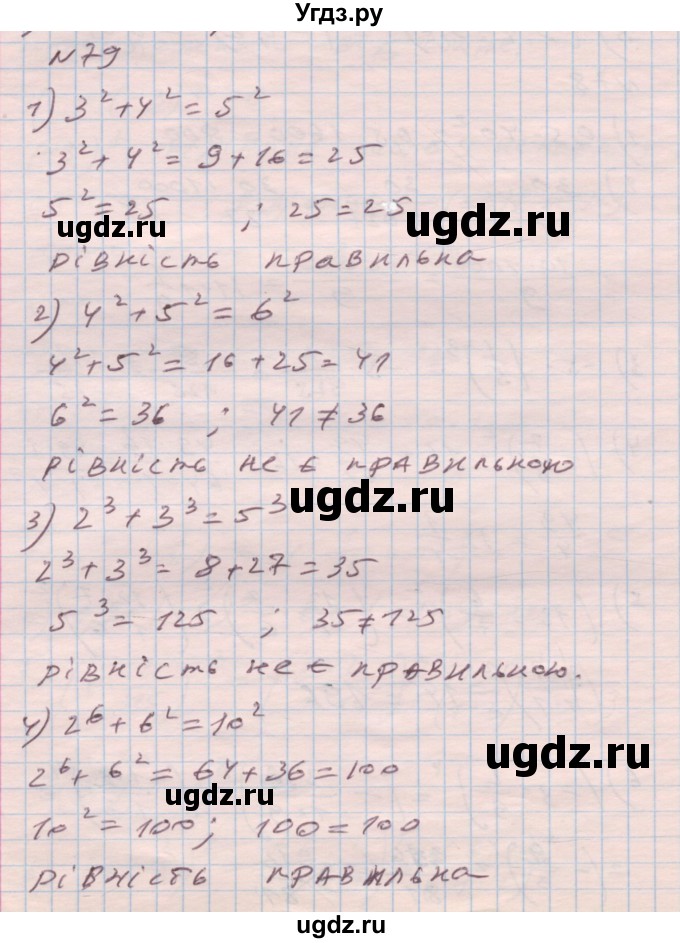 Угдз.ру
N79
1) 3² + 4² = 5²
3² + 4² = 9 + 16 = 25
5² = 25 ; 25 = 25
ugdz.ru ugdz.ru
рівність правильна
2) 4² + 5² = 6²
4² + 5² = 16 + 25 = 41
6² = 36 ; 41 ≠ 36
рівність не є правильною
ugdz.ru
3) 2³ + 3³ = 5³
2³ + 3³ = 8 + 27 = 35
5³ = 125 ; 35 ≠ 125
рівність не є правильною.
4) 2⁶ + 6² = 10²
ugdz.ru
2⁶ + 6² = 64 + 36 = 100
ugdz.ru
10² = 100 ; 100 = 100
рівність правильна
ugdz.ru